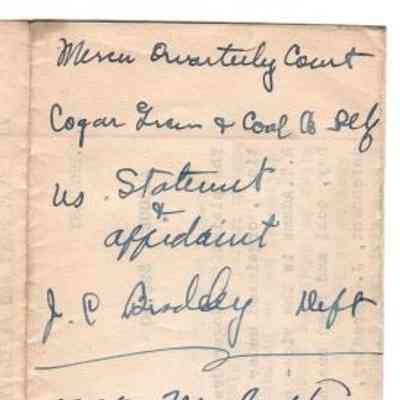 Mercer Quarterly Court
Cogar Grain & Coal Co Plf
vs. Statement
&
affidavit
J. C Bradley Deft